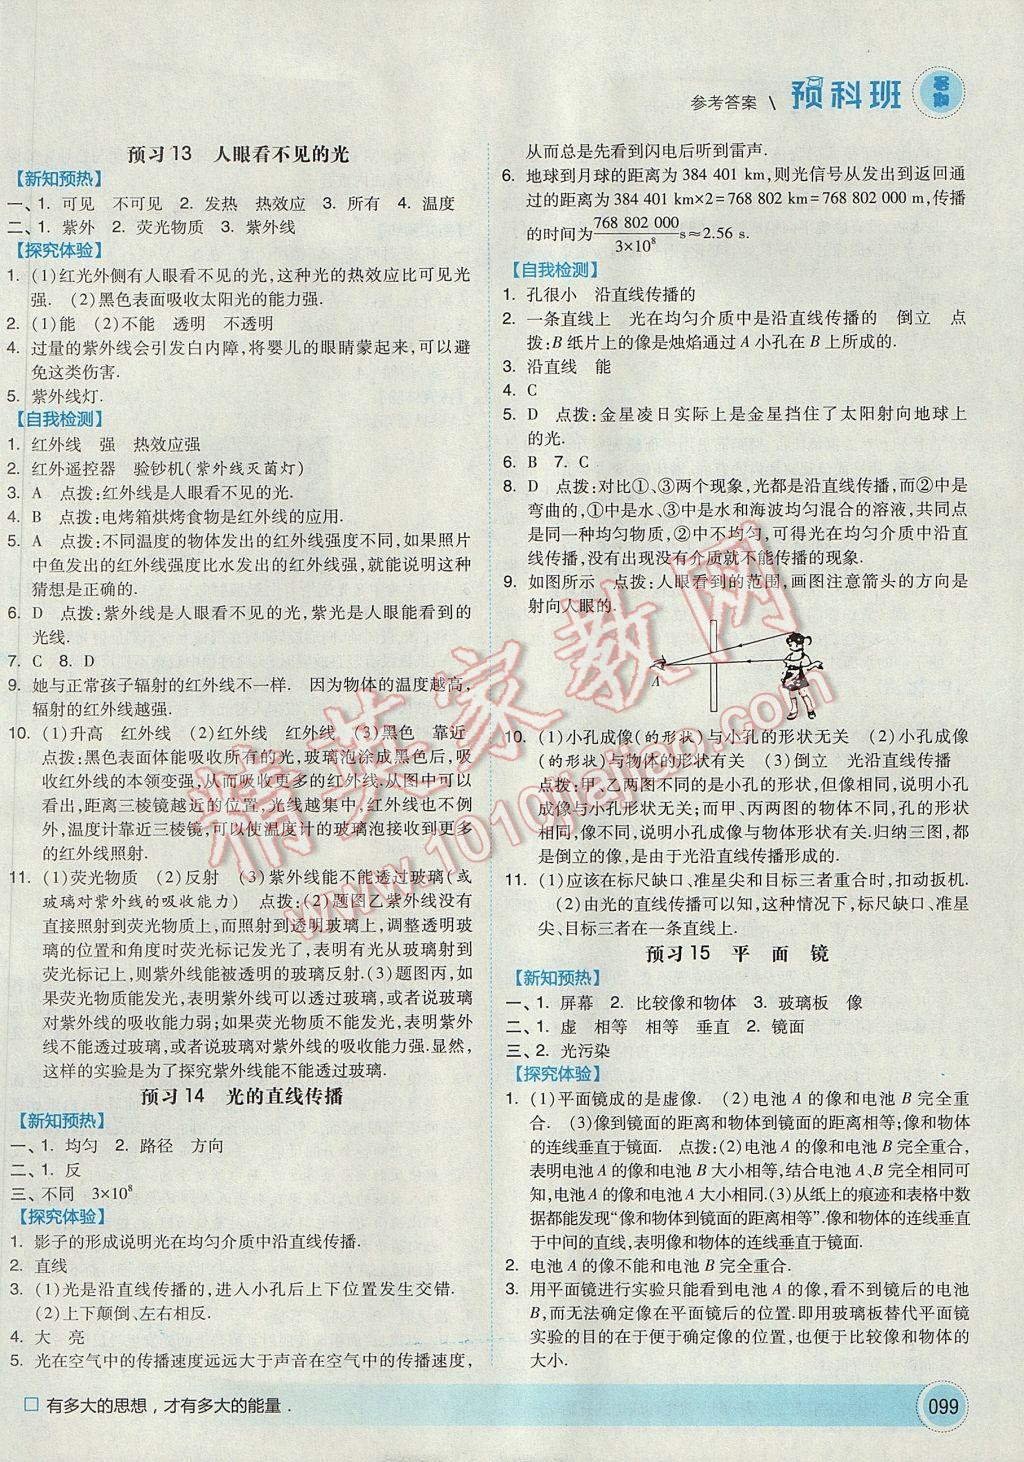 参考答案 \ 预科班 暑期
预习13 人眼看不见的光
【新知预热】
一、1. 可见 不可见 2. 发热 热效应 3. 所有 4. 温度
二、1. 紫外 2. 荧光物质 3. 紫外线
【探究体验】
1. (1)红光外侧有人眼看不见的光,这种光的热效应比可见光
强. (2)黑色表面吸收太阳光的能力强.
2. (1)能 (2)不能 透明 不透明
4. 过量的紫外线会引发白内障,将婴儿的眼睛蒙起来,可以避
免这类伤害.
5. 紫外线灯.
【自我检测】
1. 红外线 强 热效应强
2. 红外遥控器 验钞机(紫外线灭菌灯)
3. A 点拨:红外线是人眼看不见的光.
4. B 点拨:电烤箱烘烤食物是红外线的应用.
5. A 点拨:不同温度的物体发出的红外线强度不同,如果照片
中鱼发出的红外线强度比水发出的红外线强,就能说明这种
猜想是正确的.
6. D 点拨:紫外线是人眼看不见的光,紫光是人眼能看到的
光线.
7. C 8. D
9. 她与正常孩子辐射的红外线不一样. 因为物体的温度越高,
辐射的红外线越强.
10. (1)升高 红外线 (2)红外线 红外线 (3)黑色 靠近
点拨:黑色表面体能吸收所有的光,玻璃泡涂成黑色后,吸
收红外线的本领变强,从而吸收更多的红外线.从图中可以
看出,距离三棱镜越近的位置,光线越集中,红外线也不例
外,温度计靠近三棱镜,可以使温度计的玻璃泡接收到更多
的红外线照射.
11. (1)荧光物质 (2)反射 (3)紫外线能不能透过玻璃(或
玻璃对紫外线的吸收能力) 点拨:(2)题图乙紫外线没有
直接照射到荧光物质上,而是照射到玻璃上,调整透明玻
璃的位置和角度时荧光标记发光了,表明有光从玻璃射到
荧光标记上,则紫外线能被透明的玻璃反射.(3)题图丙,如
果荧光物质能发光,表明紫外线可以透过玻璃,或者说玻璃
对紫外线的吸收能力弱;如果荧光物质不能发光,表明紫外
线不能透过玻璃,或者说玻璃对紫外线的吸收能力强.显然,
这样的实验是为了探究紫外线能不能透过玻璃.
预习14 光的直线传播
【新知预热】
一、1. 均匀 2. 路径 方向
二、1. 反
三、不同 3×10⁸
【探究体验】
1. 影子的形成说明光在均匀介质中沿直线传播.
2. 直线
3. (1)光是沿直线传播的,进入小孔后上下位置发生交错.
(2)上下颠倒、左右相反.
4. 大 亮
5. 光在空气中的传播速度远远大于声音在空气中的传播速度,
从而总是先看到闪电后听到雷声.
6. 地球到月球的距离为 384 401 km,则光信号从发出到返回通
过的距离为 384 401 km×2=768 802 km=768 802 000 m,传播
的时间为768 802 000/3×10⁸ s≈2.56 s.
【自我检测】
1. 孔很小 沿直线传播的
2. 一条直线上 光在均匀介质中是沿直线传播的 倒立 点
拨:B 纸片上的像是烛焰通过 A 小孔在 B 上所成的.
3. 沿直线 能
4. C
5. D 点拨:金星凌日实际上是金星挡住了太阳射向地球上
的光.
6. B 7. C
8. D 点拨:对比①、③两个现象,光都是沿直线传播,而②中是
弯曲的,①中是水、③中是水和海波均匀混合的溶液,共同点
是同一种均匀物质,②中不均匀,可得光在均匀介质中沿直
线传播,没有出现没有个质就不能传播的现象.
9. 如图所示 点拨:人眼看到的范围,画图注意箭头的方向是
射向人眼的.
A
10. (1)小孔成像(的形状)与小孔的形状无关 (2)小孔成像
(的形状)与物体的形状有关 (3)倒立 光沿直线传播
点拨:甲、乙两图不同的是小孔的形状,但像相同,说明小孔
成像与小孔形状无关;而甲、丙两图的物体不同,孔的形状
相同,像不同,说明小孔成像与物体形状有关.归纳三图,都
是倒立的像,是由于光沿直线传播形成的.
11. (1)应该在标尺缺口、准星尖和目标三者重合时,扣动扳机.
(2)由光的直线传播可以知,这种情况下,标尺缺口、准星
尖、目标三者在一条直线上.
预习15 平面镜
【新知预热】
一、1. 屏幕 2. 比较像和物体 3. 玻璃板 像
二、1. 虚 相等 相等 垂直 2. 镜面
三、2. 光污染
【探究体验】
1. (1)平面镜成的是虚像. (2)电池 A 的像和电池 B 完全重
合. (3)像到镜面的距离和物体到镜面的距离相等;像和物体
的连线垂直于镜面. 点拨:(2)电池 A 的像和电池 B 完全重合,
表明电池 A 的像和电池 B 大小相等,结合电池 A、B 完全相同可
知,电池 A 的像和电池 A 大小相等.(3)从纸上的痕迹和表格中数
据都能发现“像和物体到镜面的距离相等”.像和物体的连线垂直
于中间的直线,表明像和物体的连线垂直于镜面.
2. 电池 A 的像不能和电池 B 完全重合.
3. 用平面镜进行实验只能看到电池 A 的像,看不到镜后的电池
B,而无法确定像在平面镜后的位置.即用玻璃板替代平面镜
实验的目的在于便于确定像的位置,也便于比较像和物体的
大小.
有多大的思想,才有多大的能量.
099
精英家教网
www.1010jiajiao.com